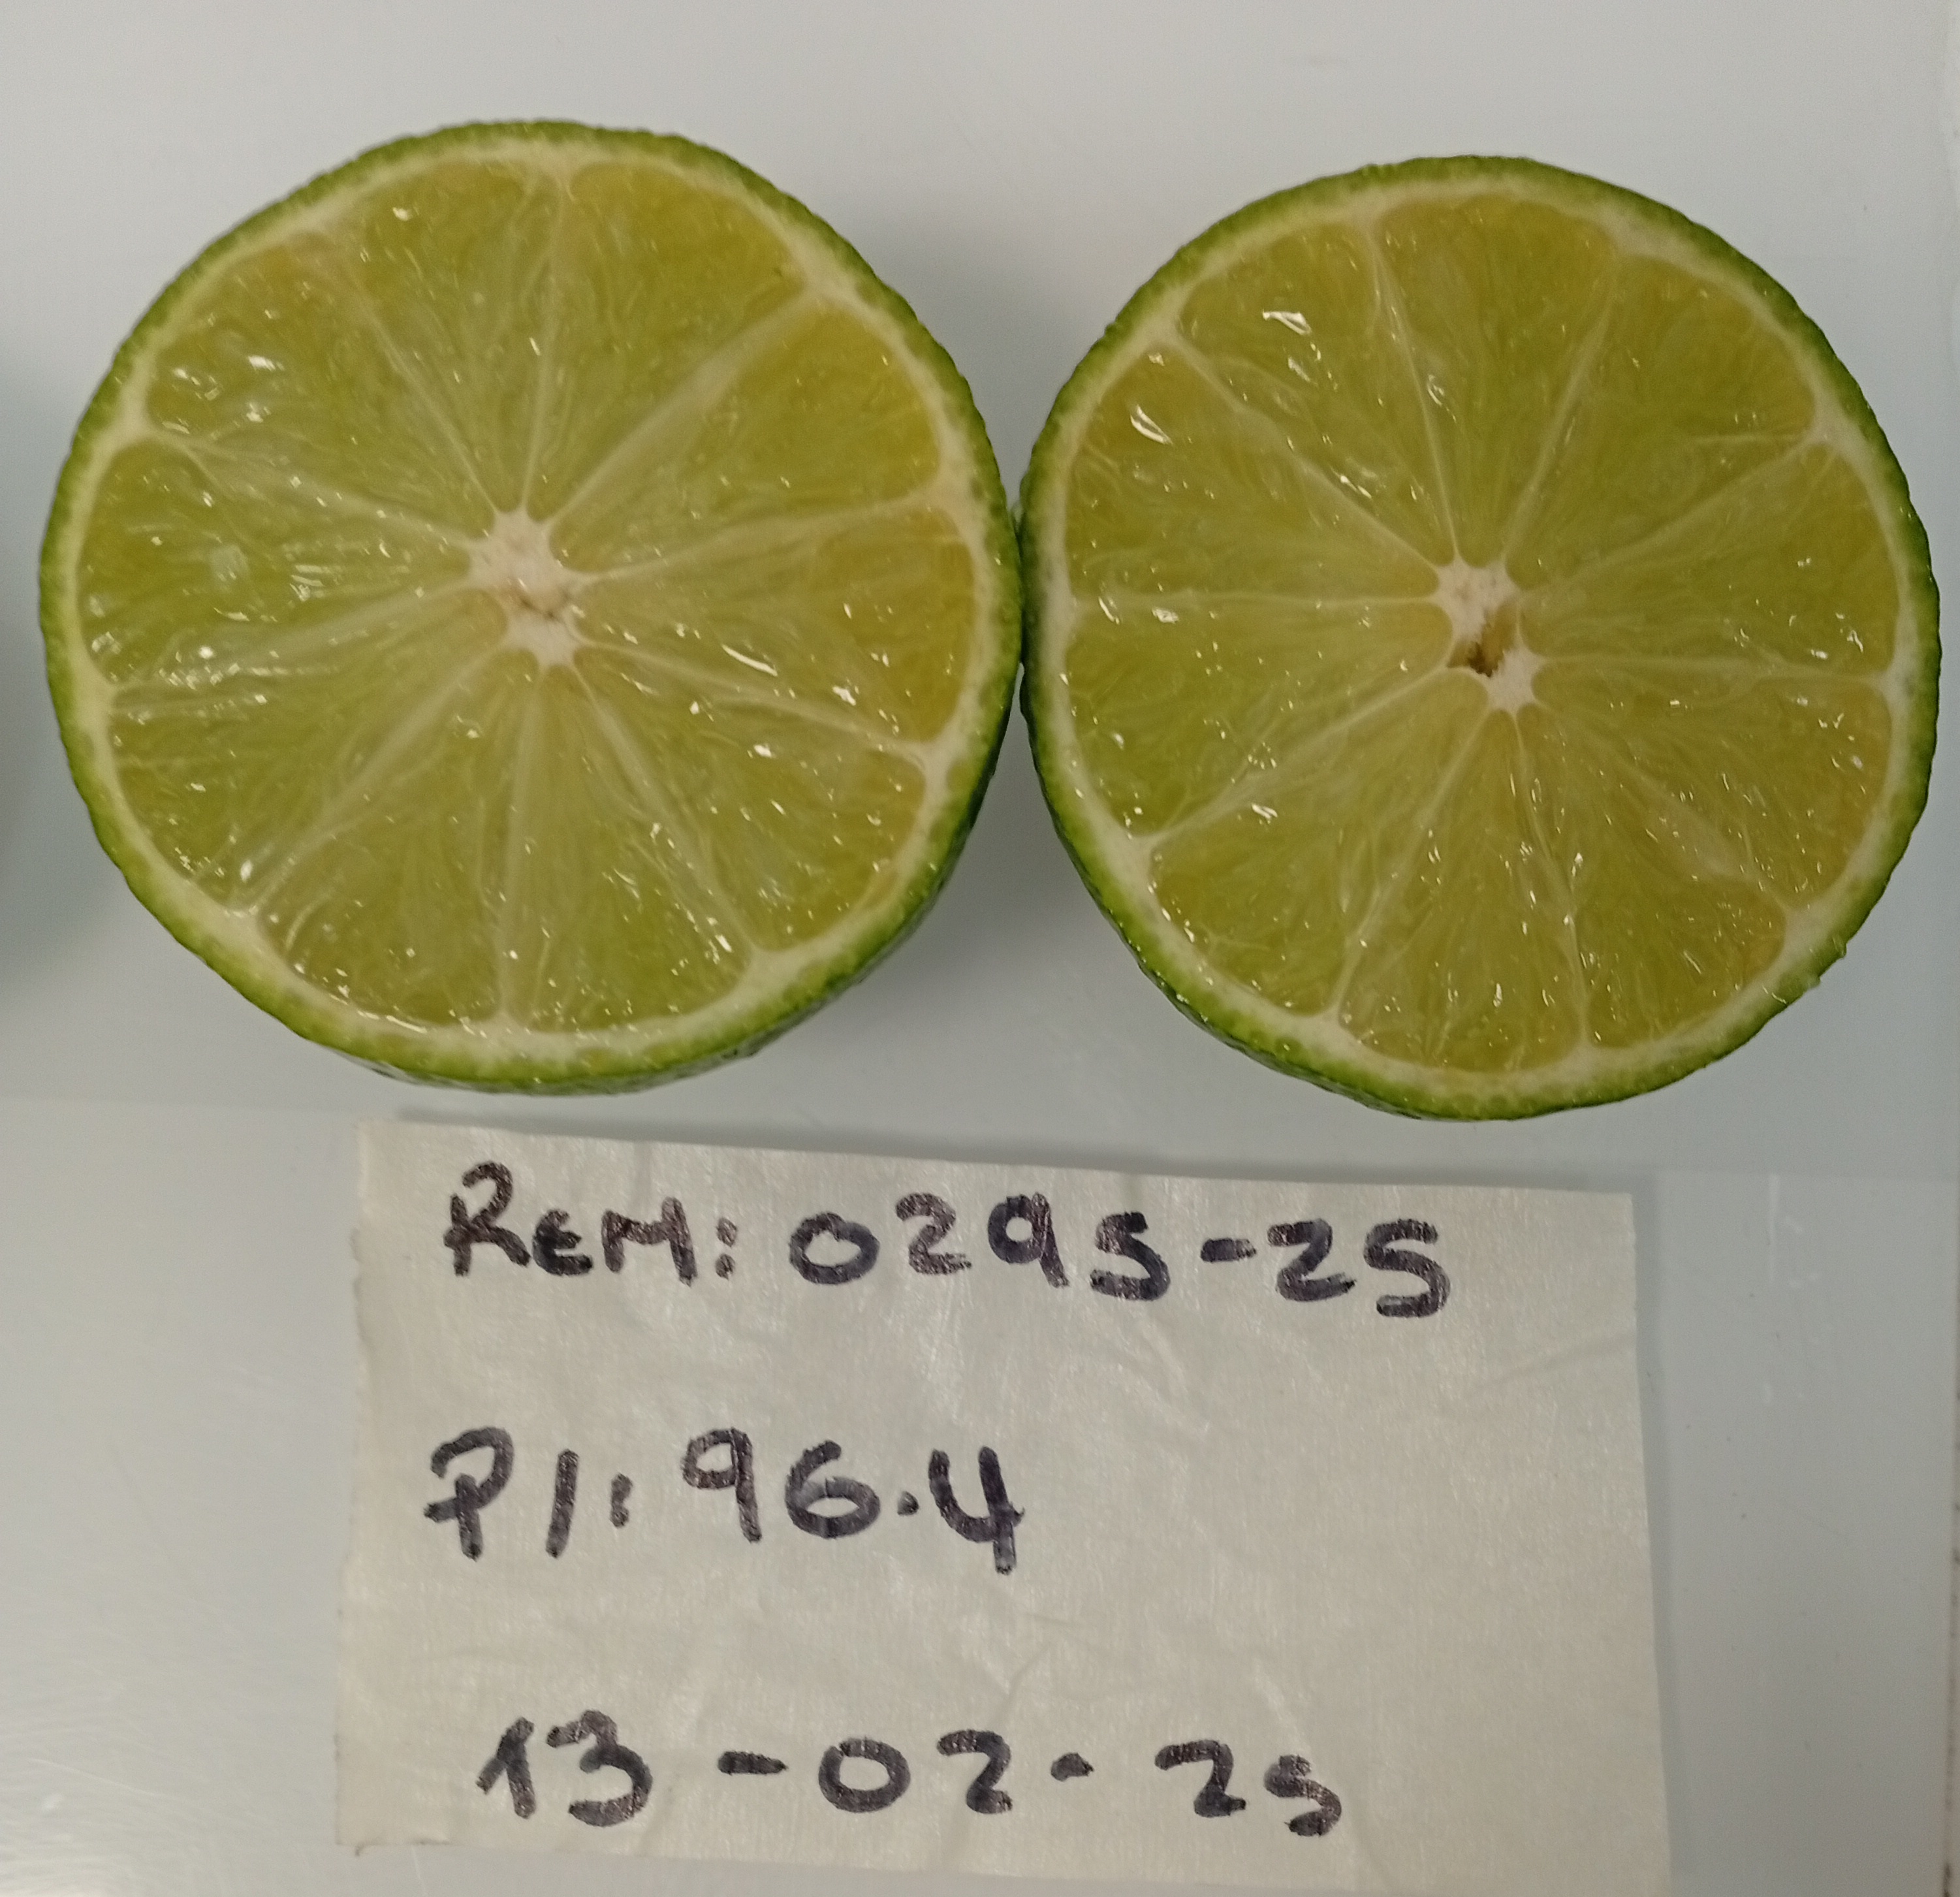 REM: 0295-25
P/: 96.4
13-02-25